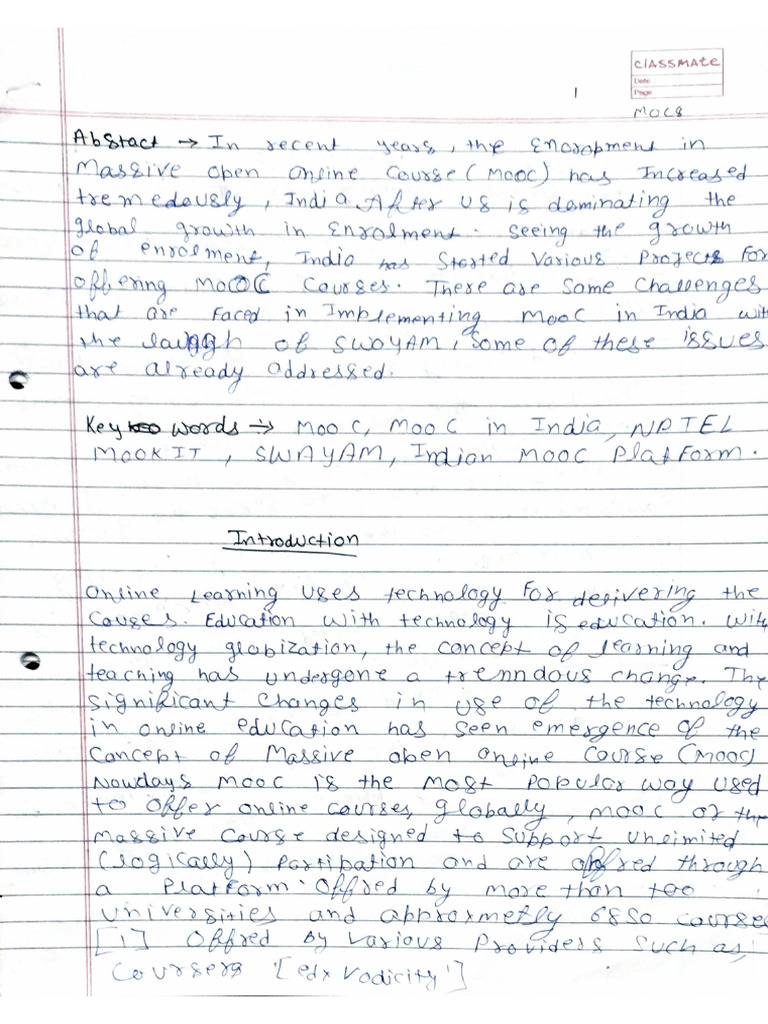 classmate
Date
Page
1
MOCs
Abstact → In recent years, the Enoropment in
Massive open online Course (MOOC) has Increased
tremedously, India. After US is dominating the
global growth in Enrolment. Seeing the growth
of enrolment, India has Started Various Projects For
offering MOOC Courses. There are Some Challenges
that are Faced in Implementing MOOC in India with
the laungh of SWAYAM, Some of these issues
are already addressed.
Key words → MOOC, MOOC in India, NPTEL
MOOKIT, SWAYAM, Indian MOOC PlatForm.
Introduction
Online Learning Uses technology For delivering the
Couses. Education With technology is education. With
technology globization, the concept of learning and
teaching has undergone a trenndous change. The
significant changes in use of the technology
in online education has seen emergence of the
Concept of Massive open online Course (MOOC)
Nowdays MOOC is the most Popular way used
to offer online courses, globally, MOOC or the
Massive Course designed to Support unlimited
(logically) Partipation and are offred through
a PlatForm. Offred by more than 700
Universities and approxmetly 6850 courses
[1] Offred by Various Providers Such as,
Coursera '[edx Vodicity']